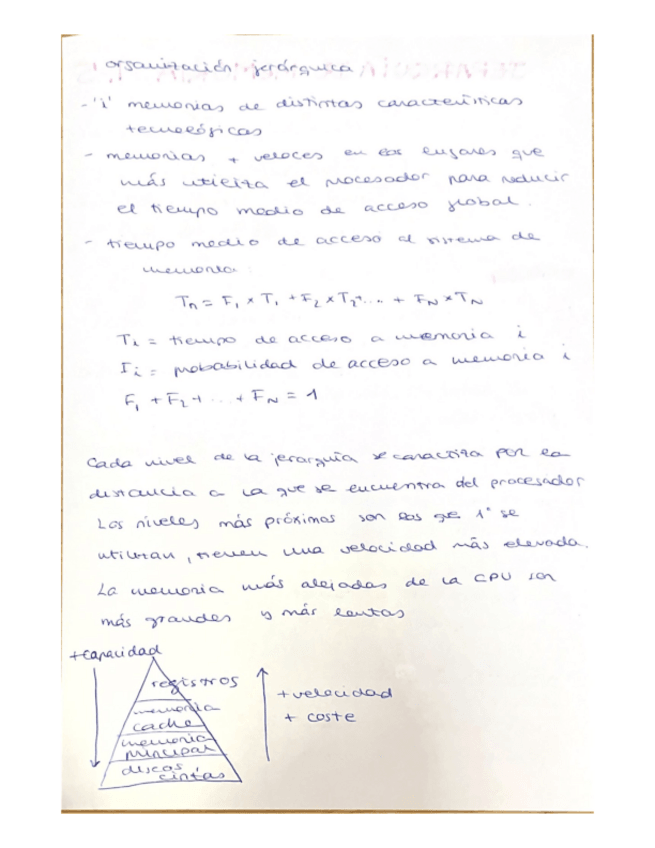 organización jerárquica
- 'i' memorias de distintas características
tecnológicas
- memorias + veloces en los lugares que
más utiliza el procesador para reducir
el tiempo medio de acceso global.
- tiempo medio de acceso al sistema de
memoria:
Tn = F1 x T1 + F2 x T2 + ... + FN x TN
Ti = tiempo de acceso a memoria i
Fi = probabilidad de acceso a memoria i
F1 + F2 + ... + FN = 1
Cada nivel de la jerarquía se caractiza por la
distancia a la que se encuentra del procesador
Los niveles más próximos son los que 1º se
utilizan, tienen una velocidad más elevada.
La memoria más alejadas de la CPU son
más grandes y más lentas
+capacidad
registros
memoria
cache
memoria
principal
discos
cintas
+ velocidad
+ coste